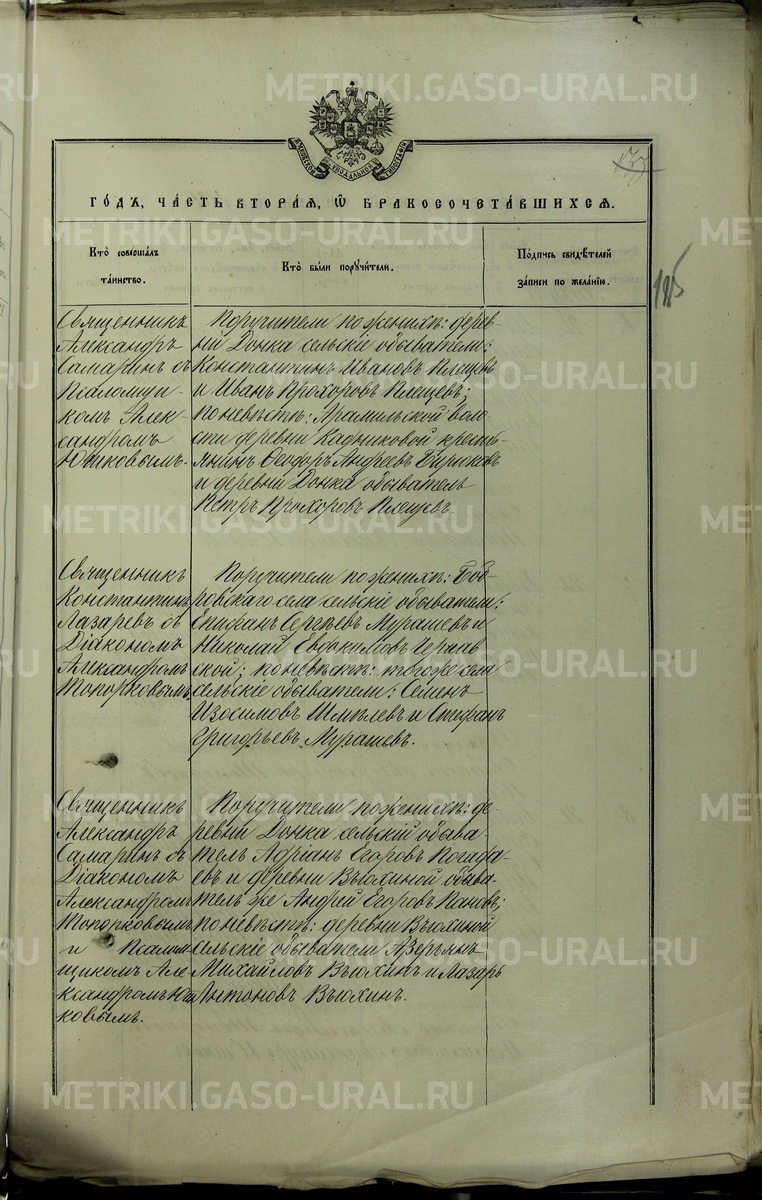 METRIKI.GASO-URAL.RU
МОСКОВСКОЙ СѴНОДАЛЬНОЙ ТИПОГРАФІИ
185
ГО́ДЪ, ЧА́СТЬ ВТОРА́Я, Ѿ БРАКОСОЧЕТА́ВШИХСЯ.
Кто̀ соверша́лъ
та́инство.
Кто̀ бы́ли порꙋчи́тели.
По́дпись свидѣ́телей
за́писи по жела́нїю.
Священникъ
Александръ
Самаринъ съ
Псаломщи-
комъ Алек-
сандромъ
Юшковымъ.
Поручители по женихѣ: дерев-
ни Донка сельскіе обыватели:
Константинъ Ивановъ Плещевъ
и Иванъ Прохоровъ Плещевъ;
по невѣстѣ: Арамильской воло-
сти деревни Кадниковой кресть-
янинъ Ѳеодоръ Андреевъ Бирюковъ
и деревни Донка обыватель
Петръ Прохоровъ Плещевъ.
Священникъ
Константинъ
Лазаревъ съ
Діакономъ
Александромъ
Топорковымъ
Поручители по женихѣ: Боб-
ровскаго села сельскіе обыватели:
Епифанъ Сергѣевъ Мурашевъ и
Николай Евдокимовъ
по невѣстѣ: тогоже села
сельскіе обыватели: Семенъ
Изосимовъ Шмелевъ и Стефанъ
Григорьевъ Мурашевъ.
Священникъ
Александръ
Самаринъ съ
Діакономъ
Александромъ
Топорковымъ
и Псалом-
щикомъ Але-
ксандромъ Юш-
ковымъ.
Поручители по женихѣ: де-
ревни Донка сельскій обыва-
тель Адріанъ Егоровъ Посада-
евъ и деревни Вьюхиной обыва-
тель же Андрей Егоровъ Пановъ;
по невѣстѣ: деревни Вьюхиной
сельскіе обыватели Аверьянъ
Михайловъ Вьюхинъ и Лазарь
Антоновъ Вьюхинъ.